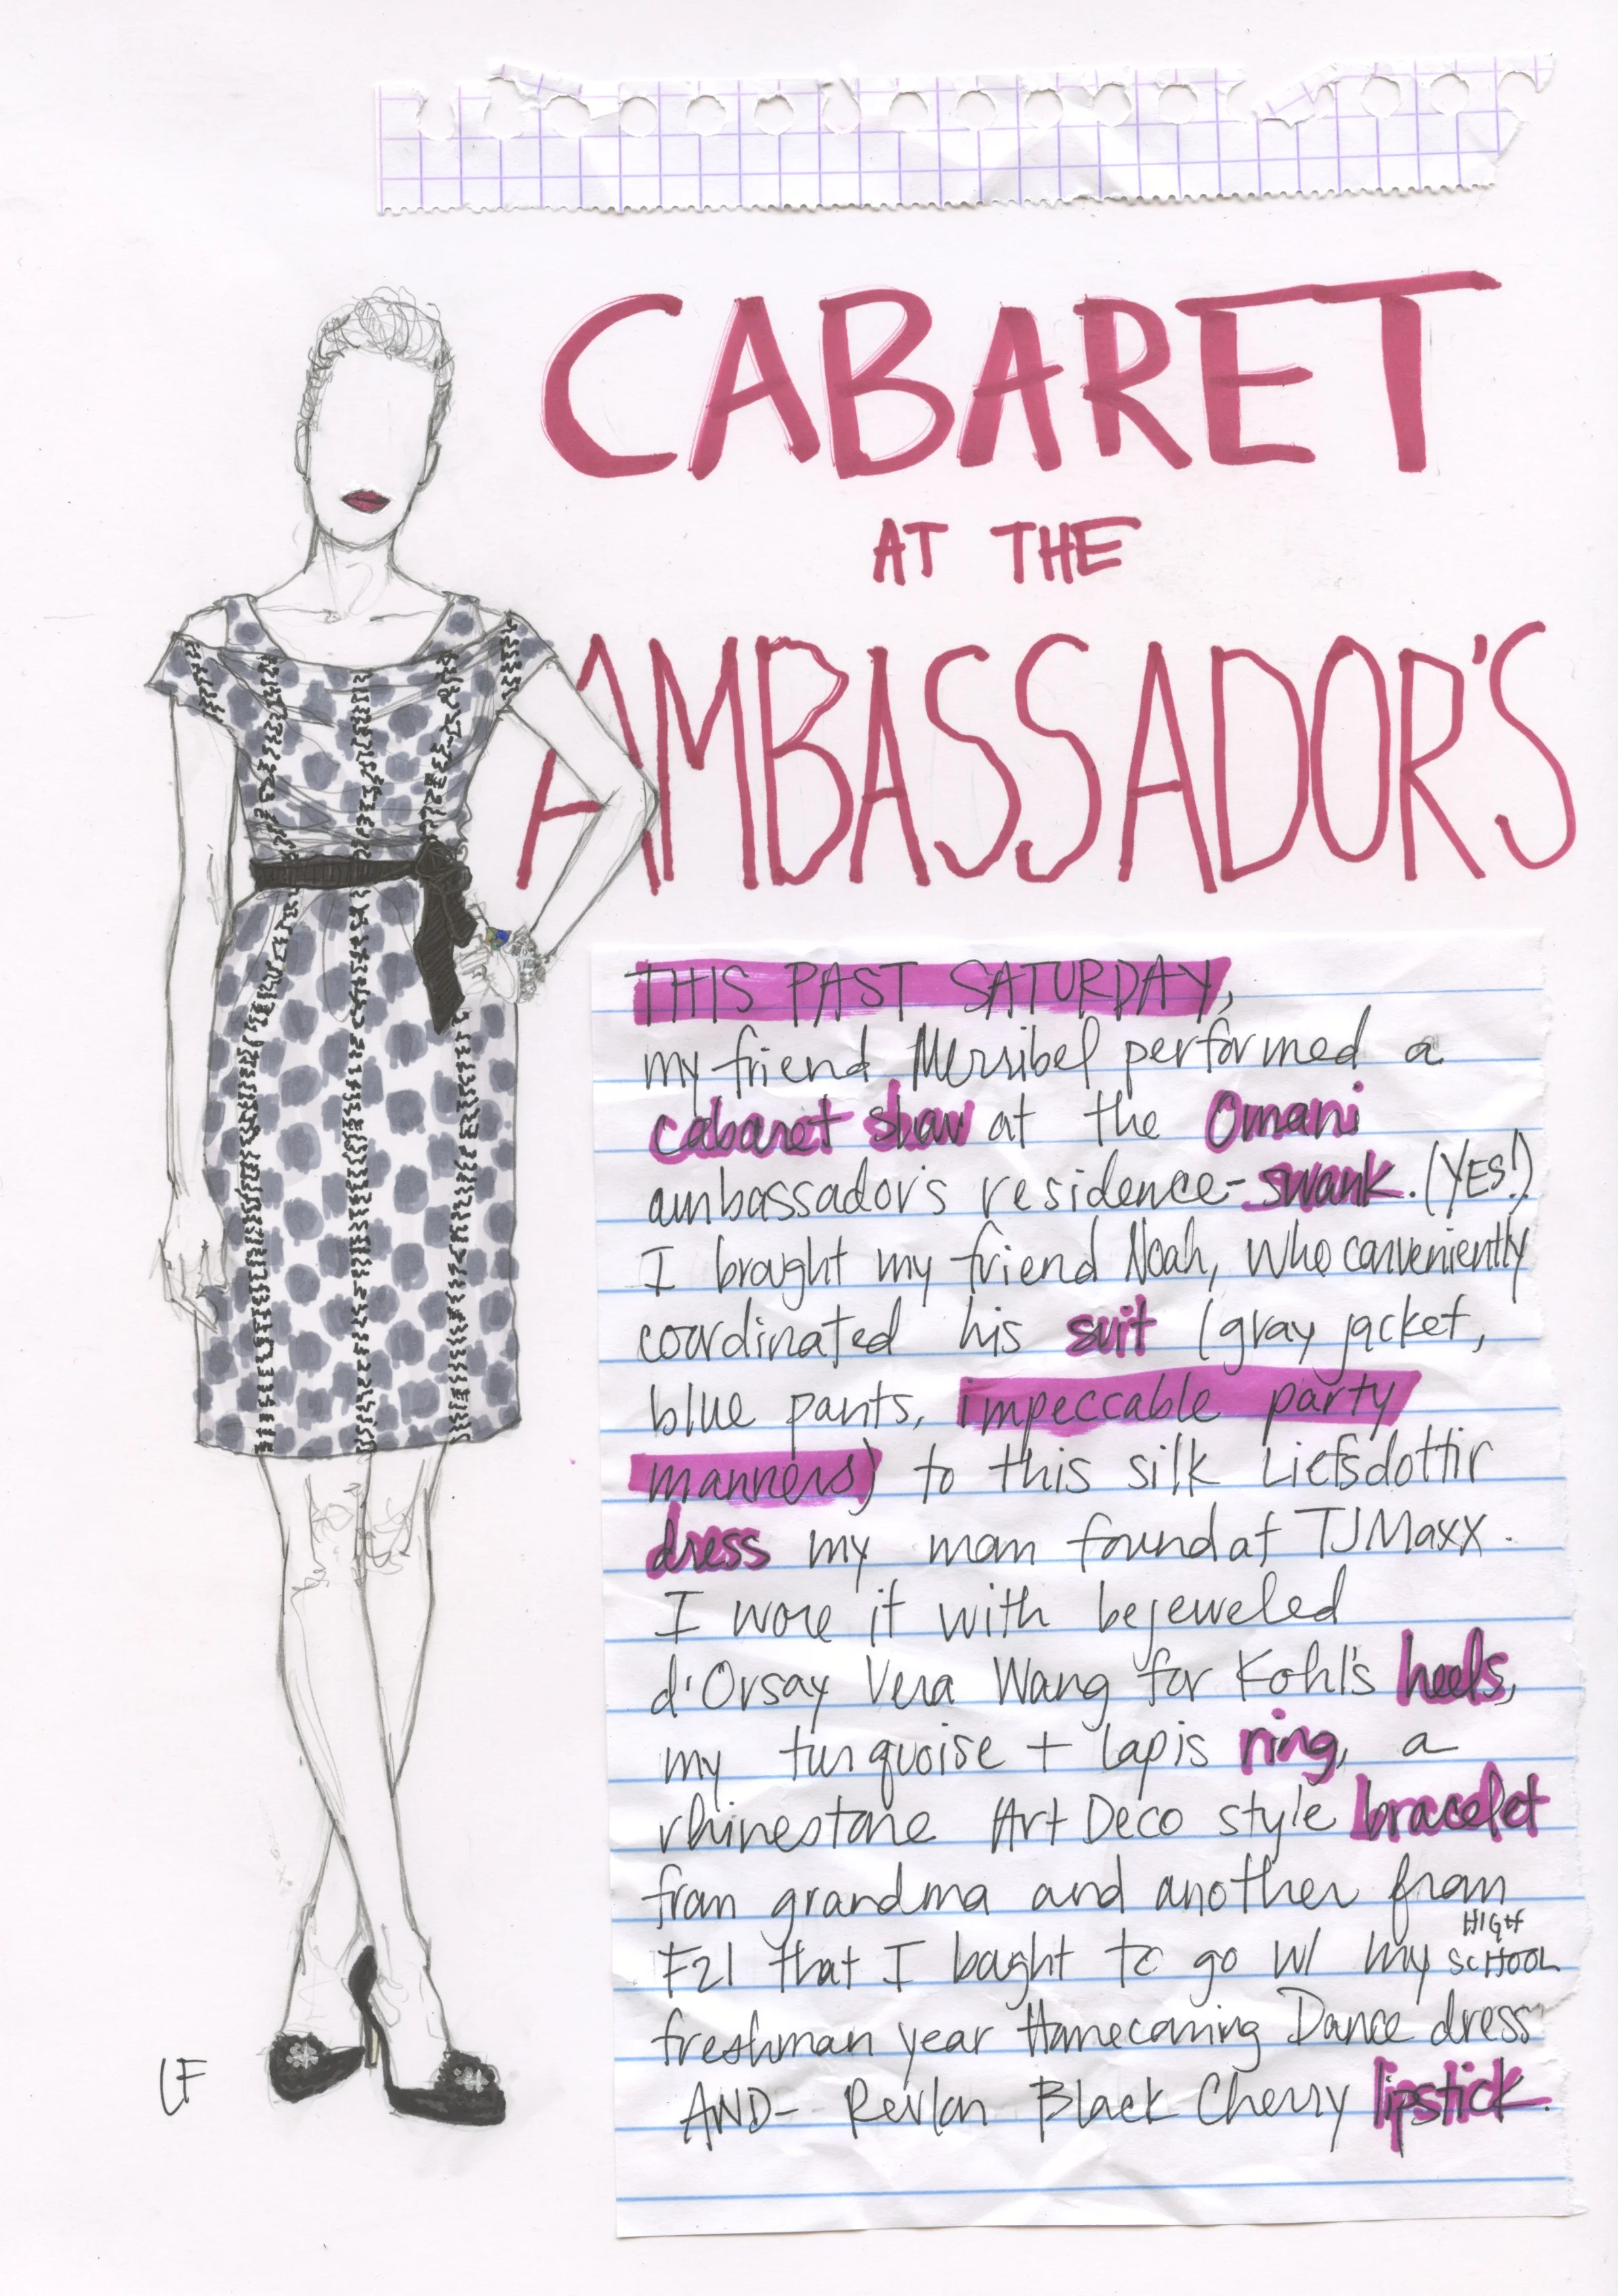 CABARET
AT THE
AMBASSADOR'S
THIS PAST SATURDAY,
my friend Merribel performed a
cabaret show at the Omani
ambassador's residence - swank. (YES!)
I brought my friend Noah, who conveniently
coordinated his suit (gray jacket,
blue pants, impeccable party
manners) to this silk Liefsdottir
dress my mom found at TJMaxx.
I wore it with bejeweled
d'Orsay Vera Wang for Kohl's heels,
my turquoise + lapis ring, a
rhinestone Art Deco style bracelet
from grandma and another from
F21 that I bought to go w/ my HIGH SCHOOL
freshman year Homecoming Dance dress
AND- Revlon Black Cherry lipstick.
LF